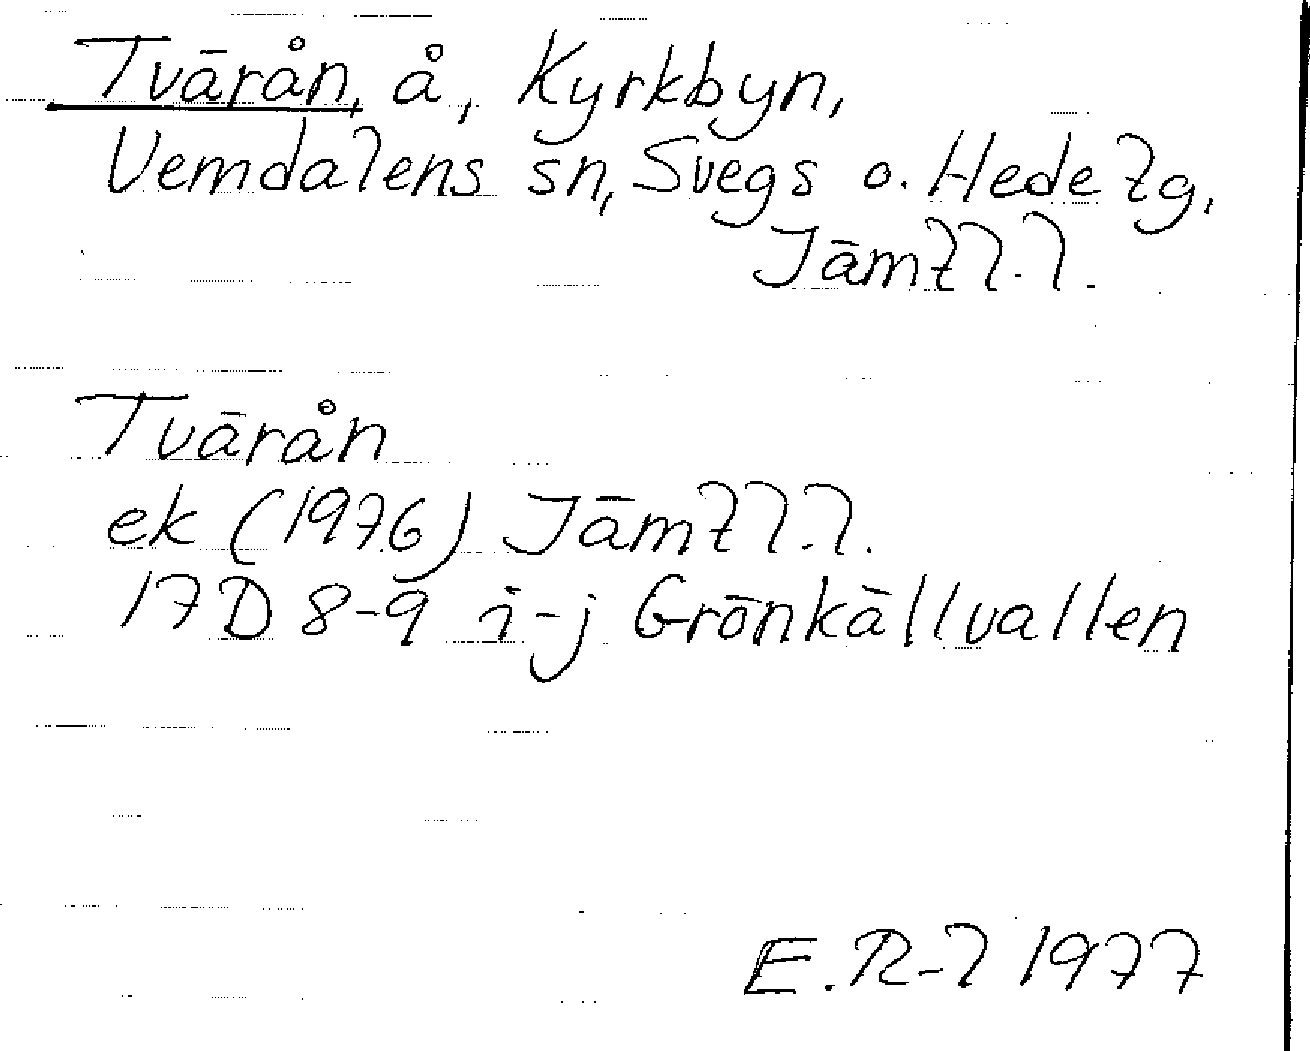 Tvärån, å, Kyrkbyn,
Vemdalens sn, Svegs o. Hede tg,
Jämtl. l.
Tvärån
ek (1976) Jämtl. l.
17D 8-9 i-j Grönkällvallen
E. R-l 1977